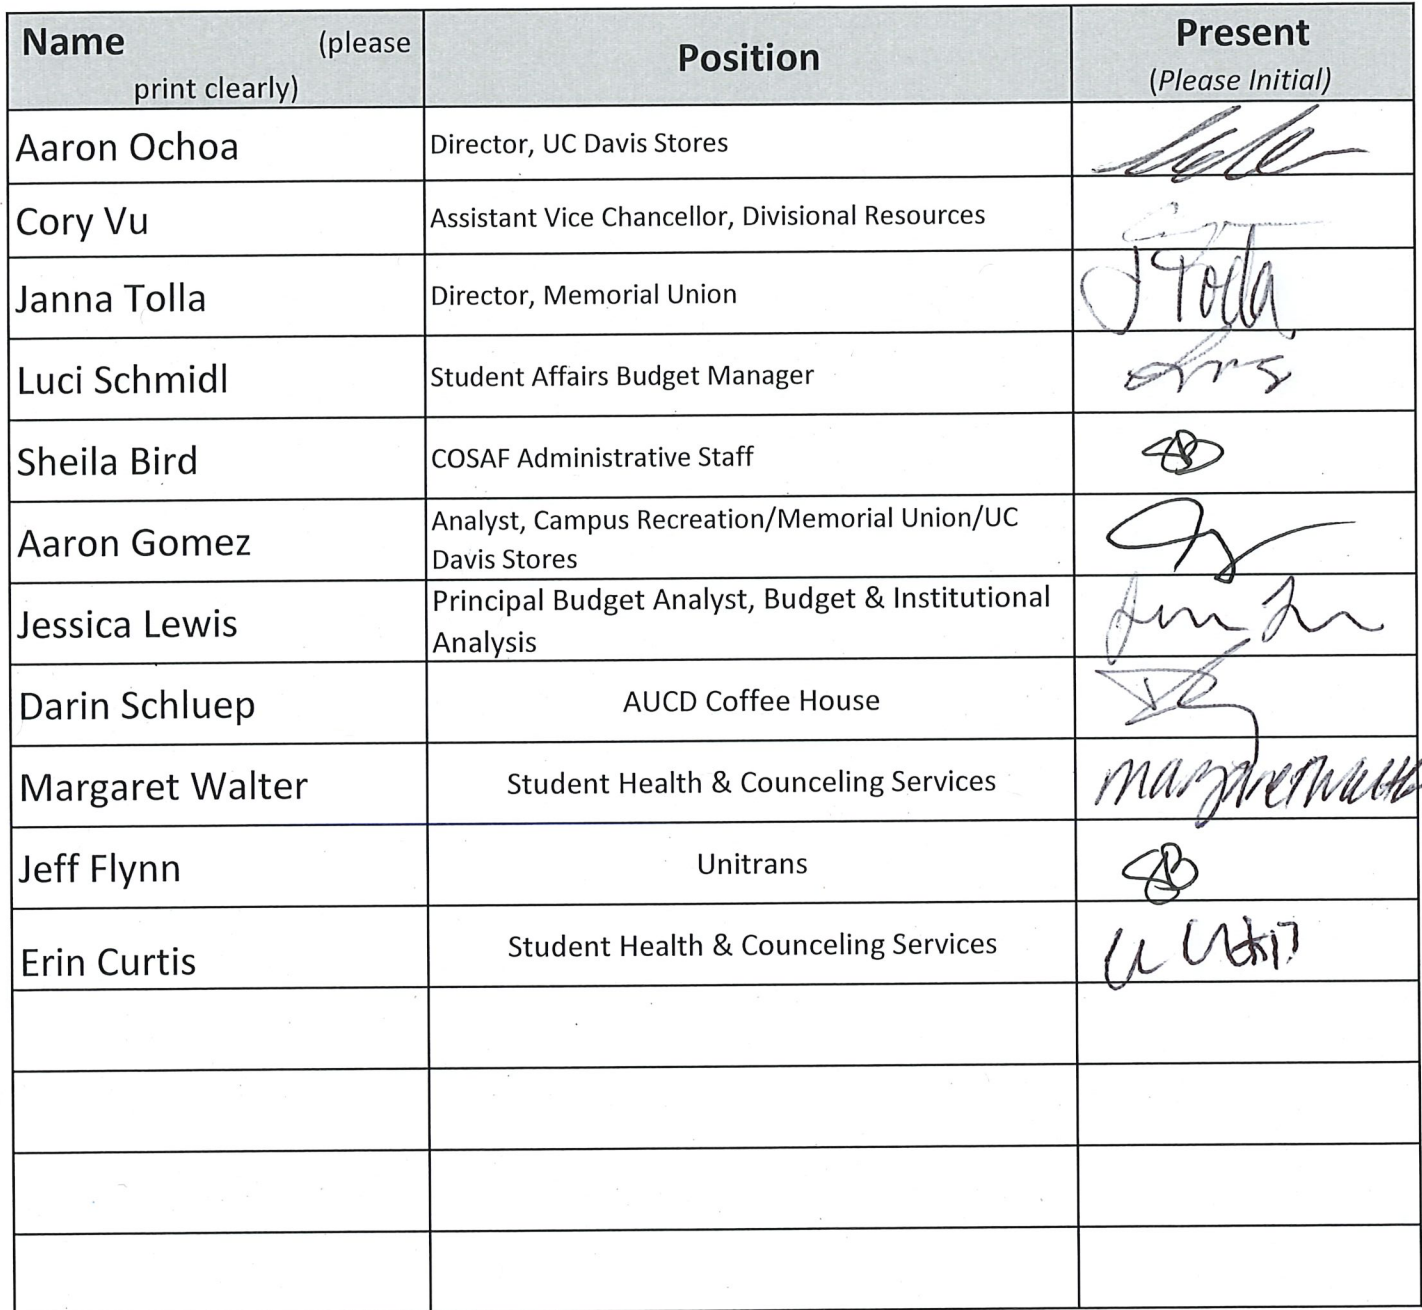 Name (please
print clearly)
Position
Present
(Please Initial)
Aaron Ochoa
Director, UC Davis Stores
Cory Vu
Assistant Vice Chancellor, Divisional Resources
Janna Tolla
Director, Memorial Union
J Tolla
Luci Schmidl
Student Affairs Budget Manager
Sheila Bird
COSAF Administrative Staff
SB
Aaron Gomez
Analyst, Campus Recreation/Memorial Union/UC
Davis Stores
Jessica Lewis
Principal Budget Analyst, Budget & Institutional
Analysis
Darin Schluep
AUCD Coffee House
Margaret Walter
Student Health & Counceling Services
Margaret Walter
Jeff Flynn
Unitrans
SB
Erin Curtis
Student Health & Counceling Services